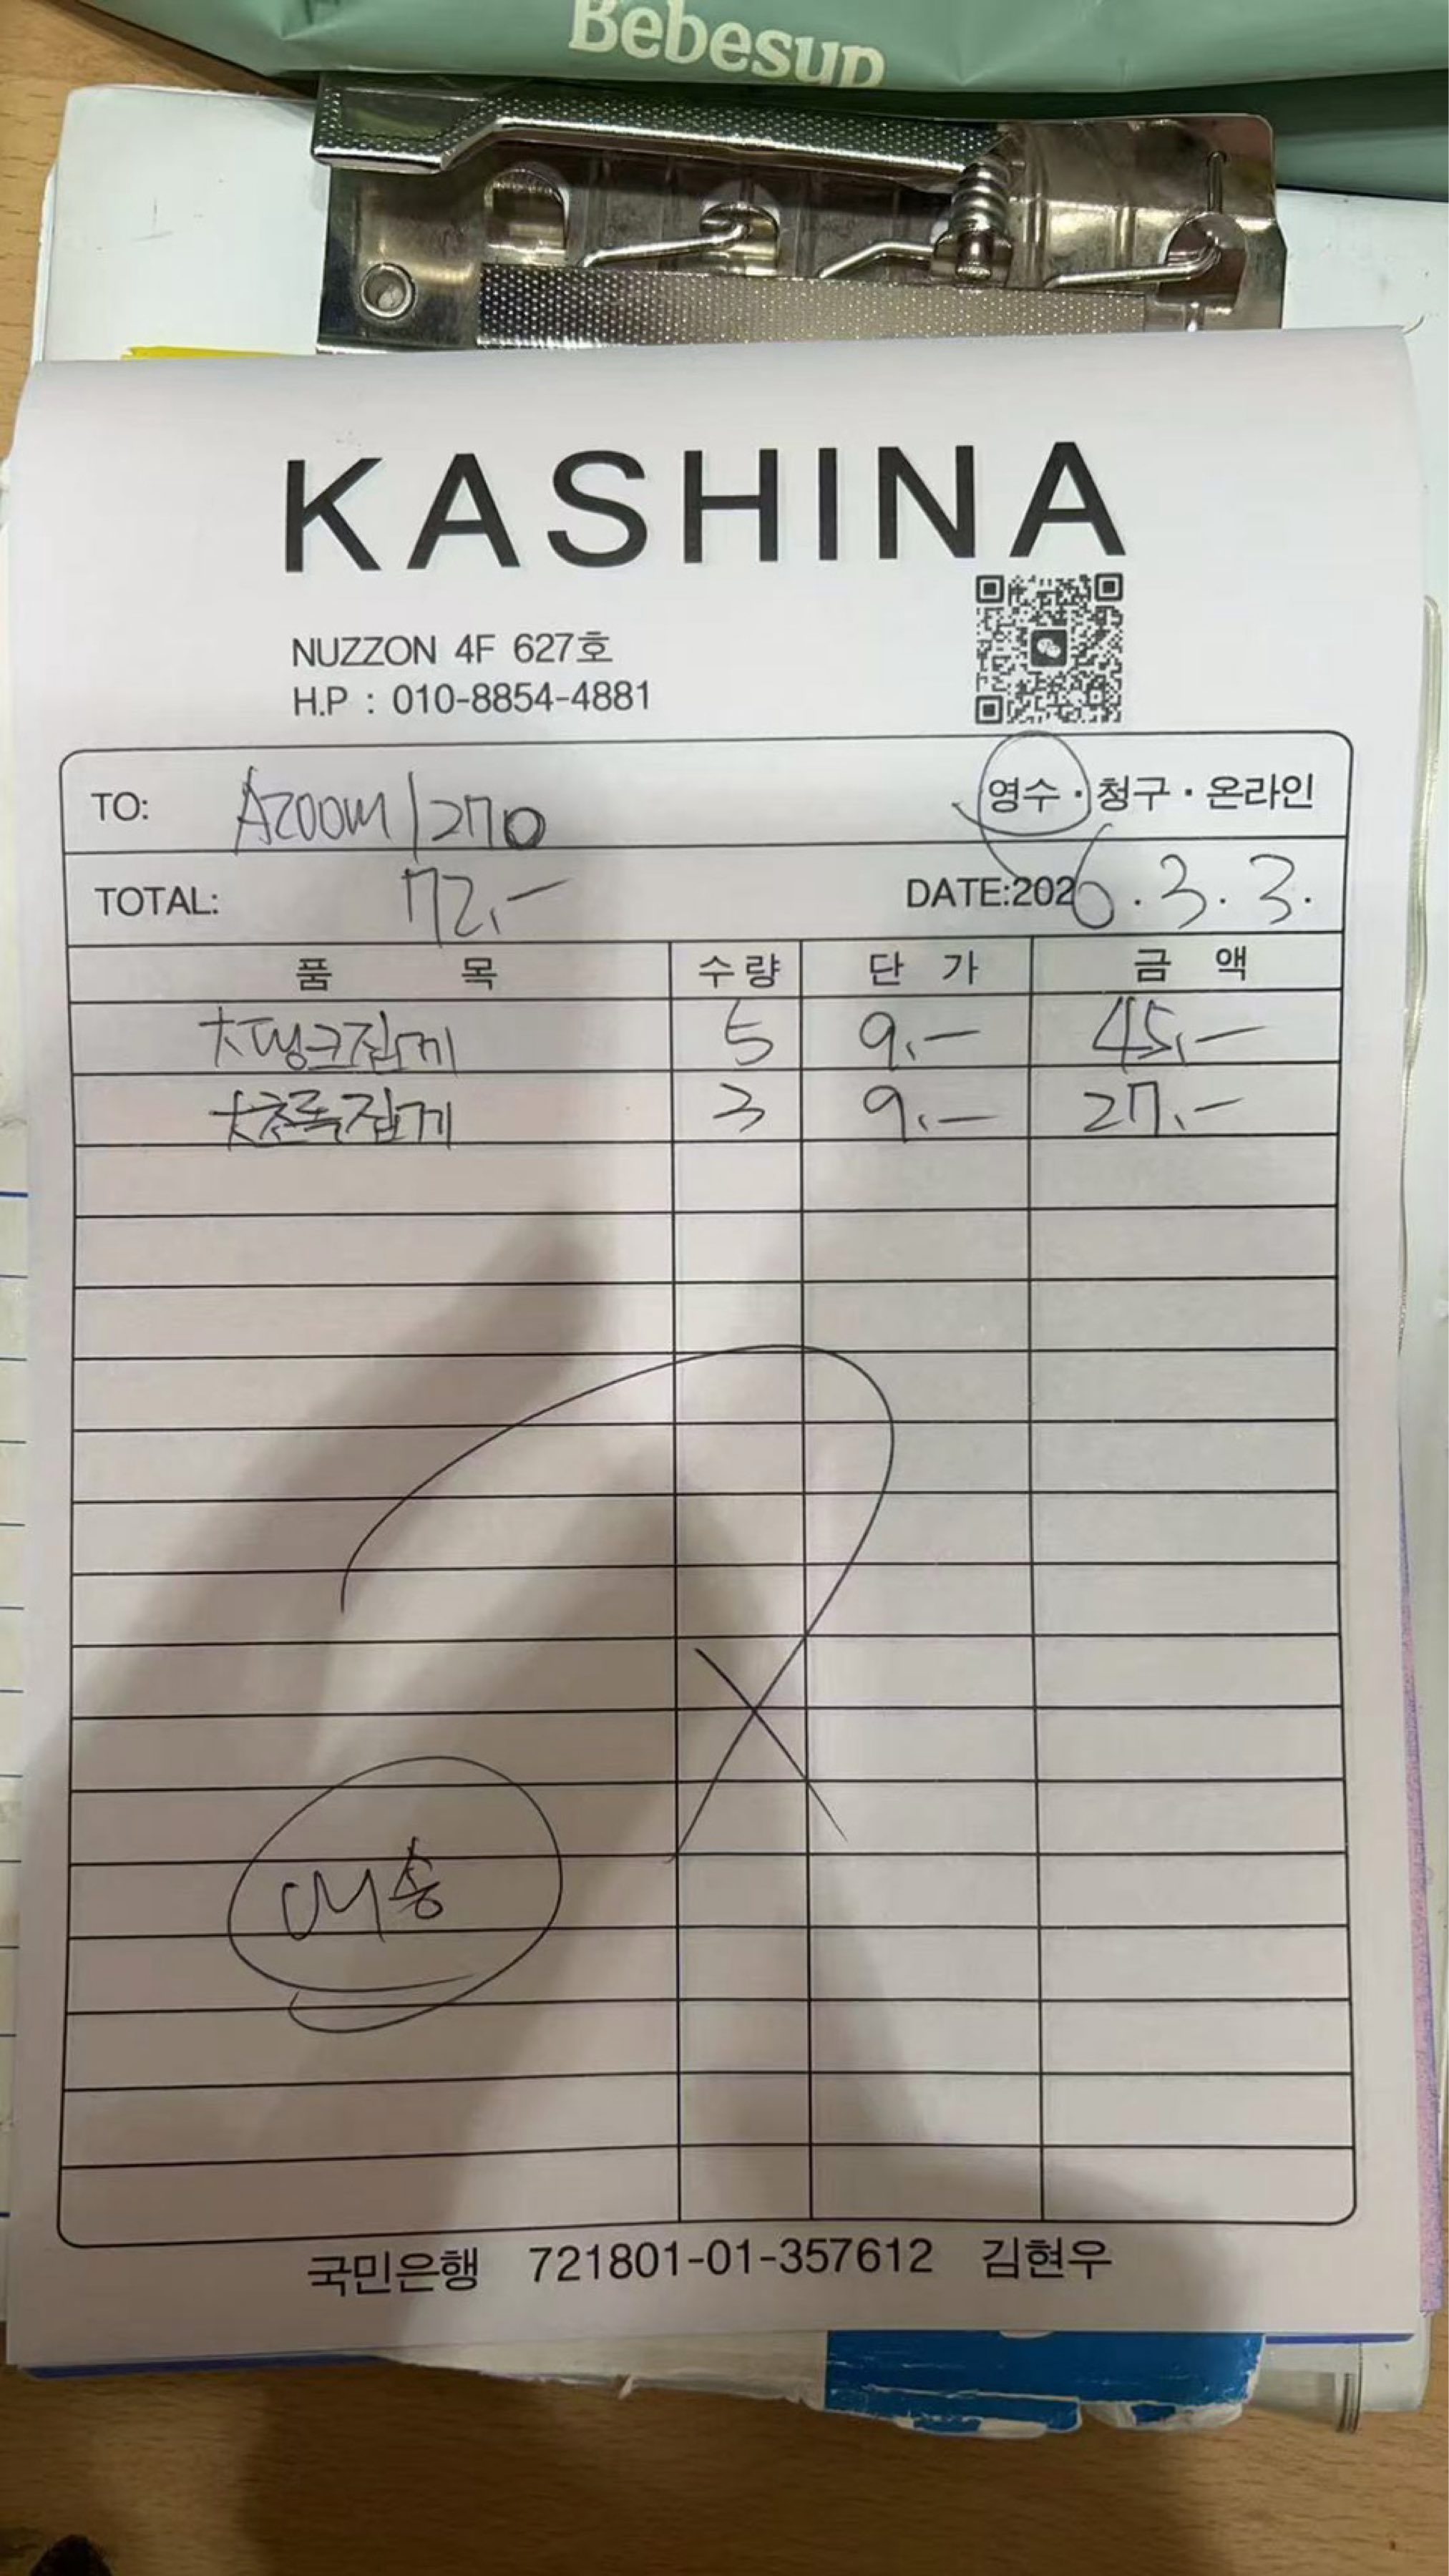 Bebesup
KASHINA
NUZZON 4F 627호
H.P : 010-8854-4881
TO: AZOOM/270 영수 · 청구 · 온라인
TOTAL: 72,- DATE:2026.3.3.
품 목 수량 단 가 금 액
大핑크집게 5 9,- 45,-
大초록집게 3 9,- 27,-
미송
국민은행 721801-01-357612 김현우